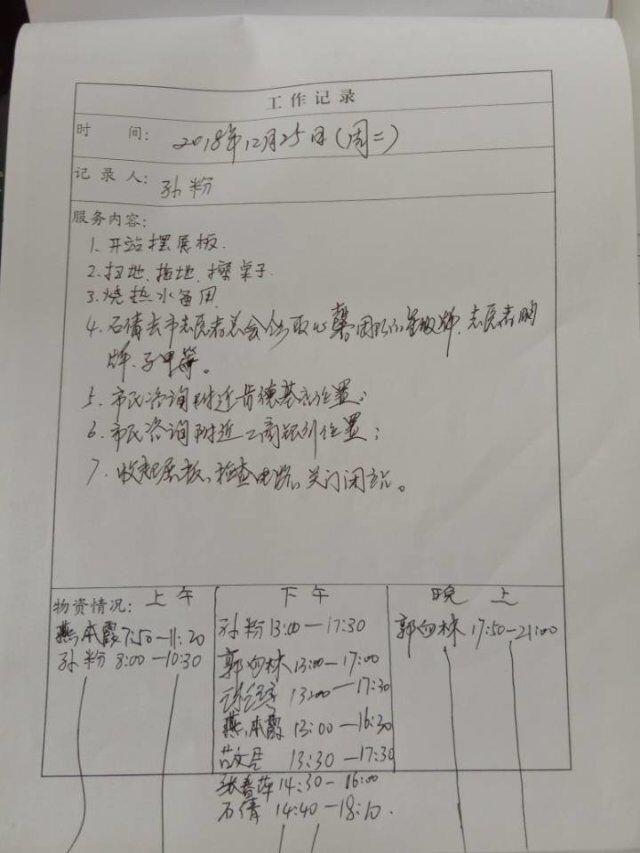 工作记录
时 间: 2018年12月25日(周二)
记录人: 孙粉
服务内容:
1. 开站摆展板.
2. 扫地、拖地、擦桌子.
3. 烧热水备用.
4. 石倩去市志愿者总会领取心馨团队的星级牌、志愿者胸
牌、马甲等。
5. 市民咨询附近肯德基店位置;
6. 市民咨询附近工商银行位置;
7. 收起展板、检查电路、关门闭站。
物资情况: 上午 下午 晚上
燕本霞 7:50—11:20
孙粉 8:00—10:30
孙粉 13:00—17:30
郭向林 13:00—17:00
13:00—17:30
燕本霞 13:00—16:30
13:30—17:30
张善萍 14:30—16:00
石倩 14:40—18:10.
郭向林 17:50—21:00